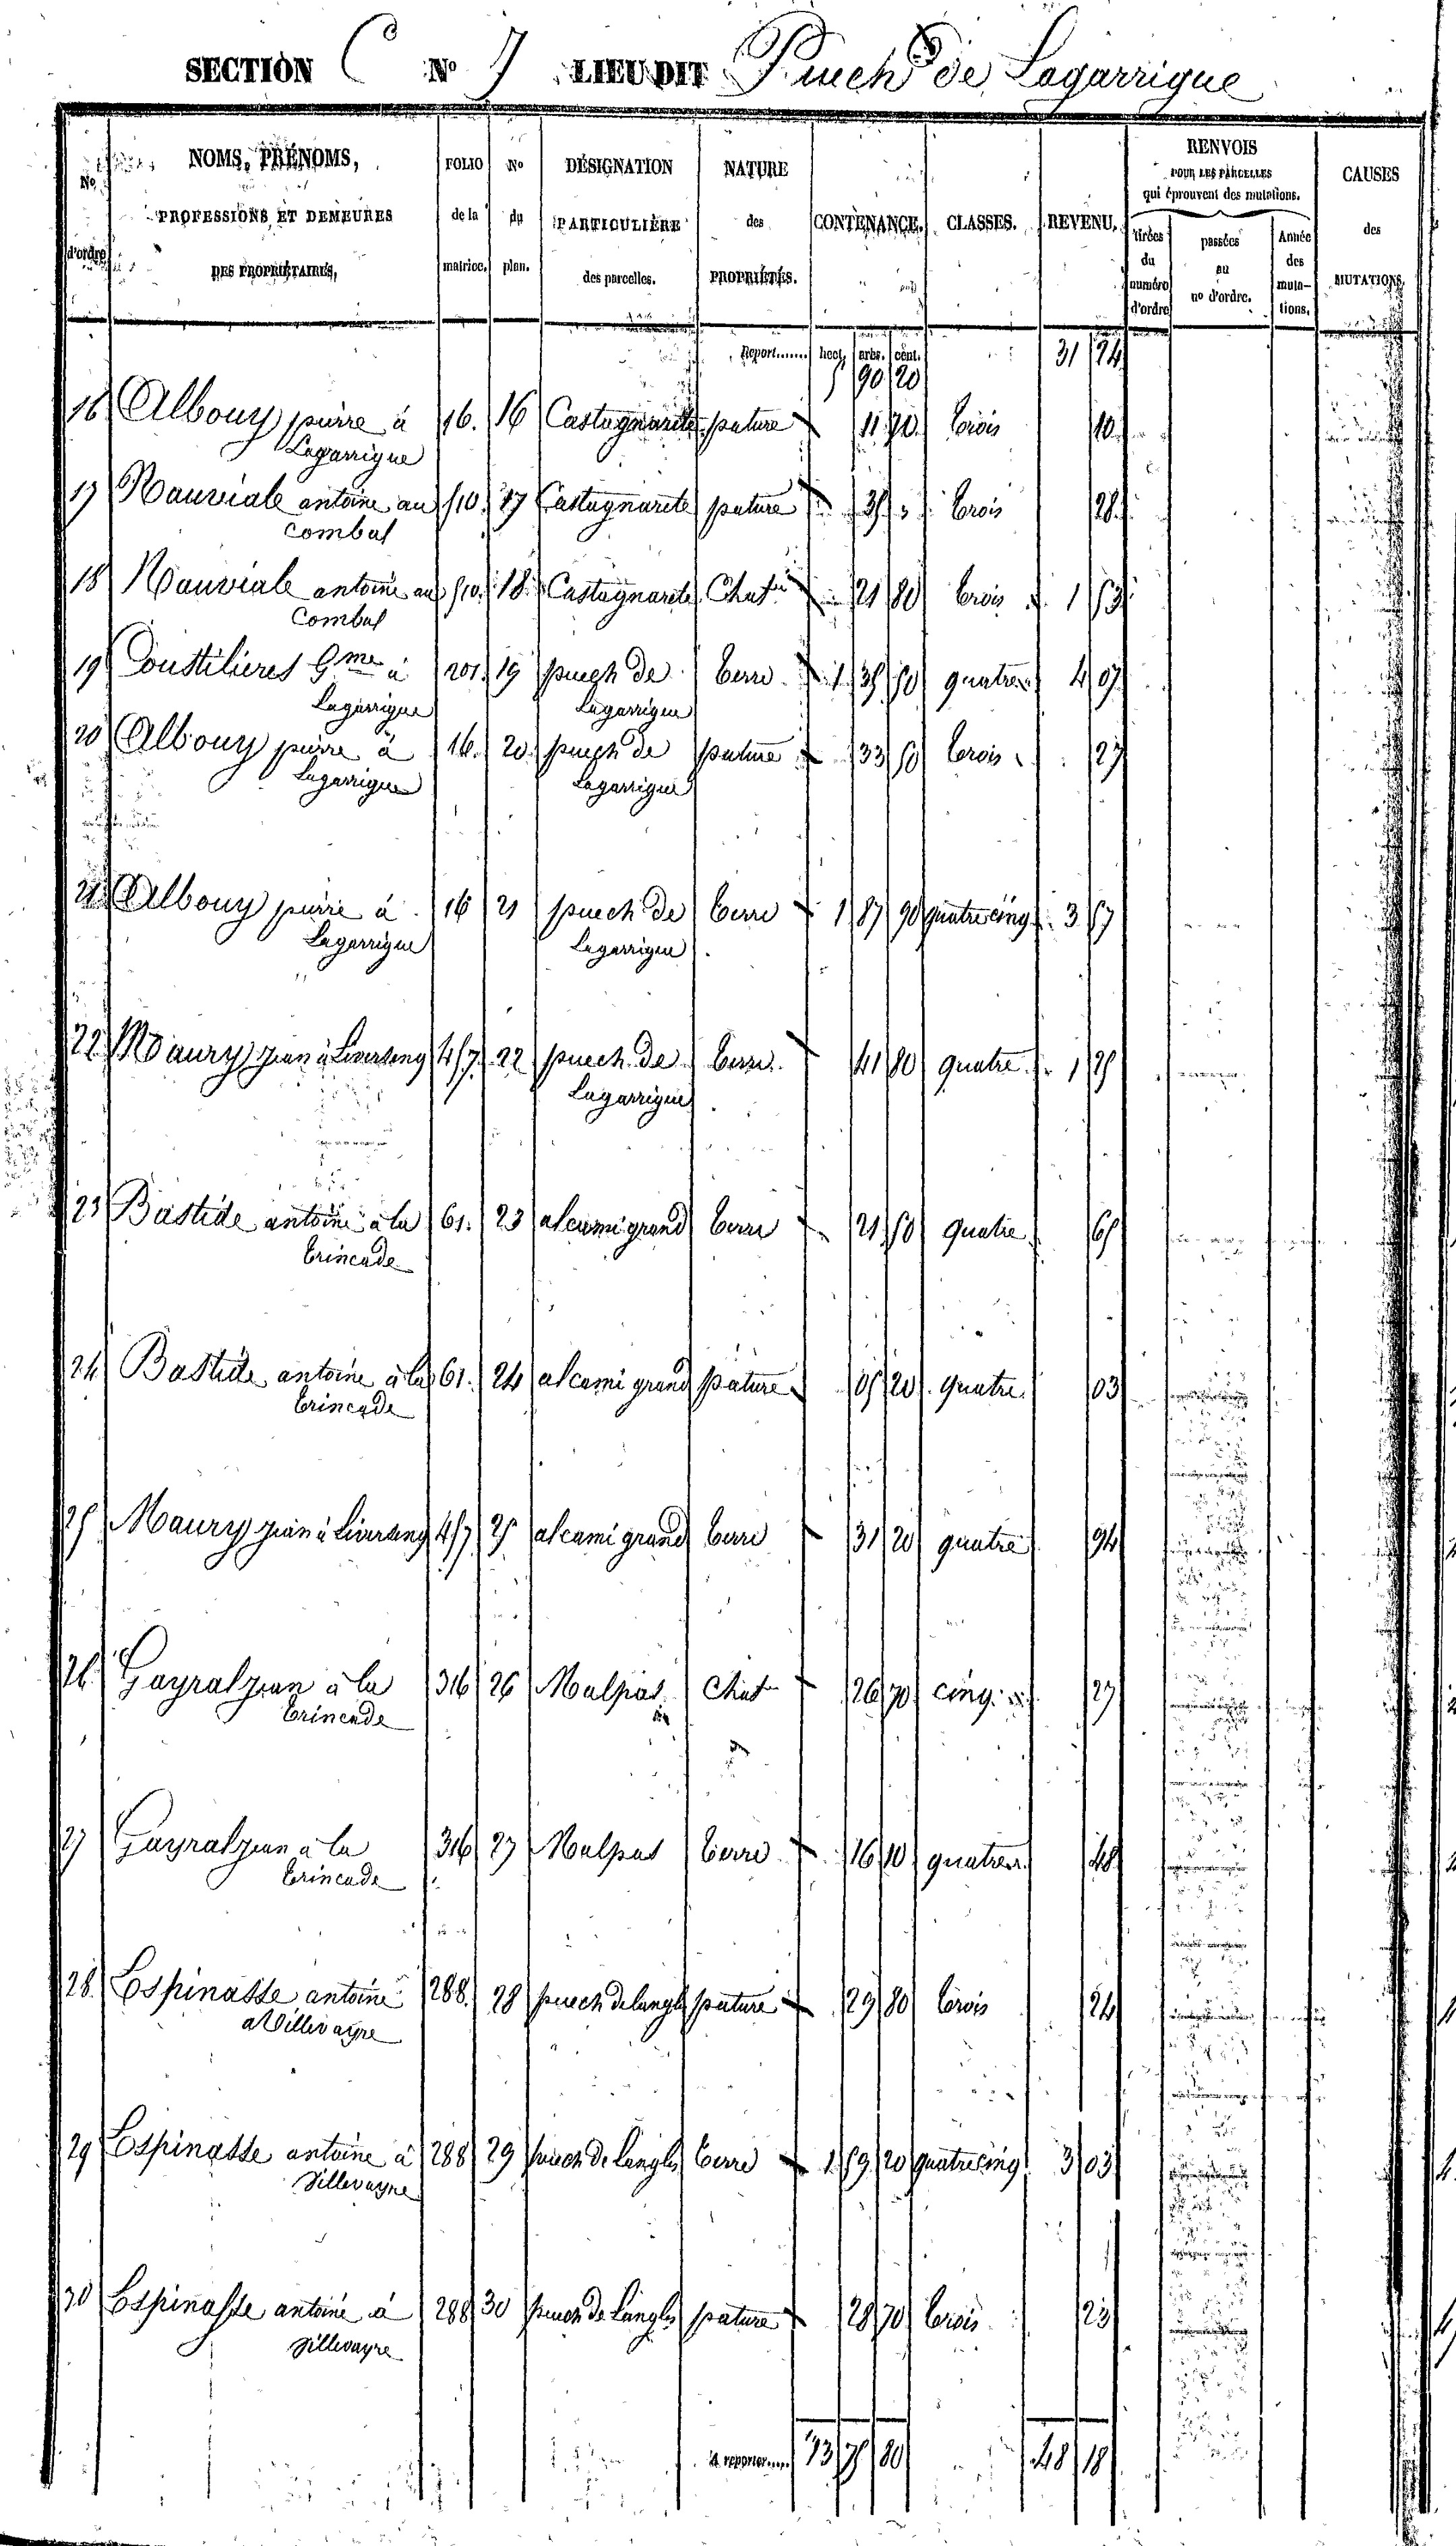 SECTION C N° 7 LIEU DIT Puech de Lagarrigue
N° d'ordre NOMS, PRÉNOMS, PROFESSIONS ET DEMEURES DES PROPRIÉTAIRES, FOLIO de la matrice. N° du plan. DÉSIGNATION PARTICULIÈRE des parcelles. NATURE des PROPRIÉTÉS. CONTENANCE. CLASSES. REVENU. RENVOIS POUR LES PARCELLES qui éprouvent des mutations. tirées du numéro d'ordre passées au n° d'ordre. Année des muta- tions. CAUSES des MUTATIONS.
Report....... hect. ares. cent. 31 24
5 90 20
16 Albouy pierre à 16. 16 Castagnarete pature 11 70 trois 10
Lagarrigue
17 Nauviale antoine au 510. 17 Castagnarete pature 35 " trois 28
Combal
18 Nauviale antoine au 510. 18 Castagnarete Chat.n 21 80 trois 1 53
Combal
19 Coustilieres G.me à 201. 19 puech de terre 1 35 50 quatre 4 07
Lagarrigue Lagarrigue
20 Albouy pierre à 16. 20 puech de pature 33 50 trois 27
Lagarrigue Lagarrigue
21 Albouy pierre à 16 21 puech de terre 1 87 90 quatre cinq 3 57
Lagarrigue Lagarrigue
22 Maury jean à 457. 22 puech de terre 41 80 quatre 1 25
Lagarrigue
23 Bastide antoine à la 61. 23 al cami grand terre 21 50 quatre 65
trincade
24 Bastide antoine à la 61. 24 al cami grand pature 05 20 quatre 03
trincade
25 Maury jean à 457 25 al cami grand terre 31 20 quatre 94
26 Gayral jean à la 316 26 Malpas Chat.n 26 70 cinq 27
trincade
27 Gayral jean à la 316 27 Malpas terre 16 10 quatre 48
trincade
28 Espinasse antoine 288. 28 puech de langle pature 29 80 trois 24
à Villevayre
29 Espinasse antoine à 288 29 puech de Langle terre 1 59 20 quatre cinq 3 03
Villevayre
30 Espinasse antoine à 288 30 puech de Langle pature 28 70 trois 23
Villevayre
A reporter..... 13 75 80 48 18